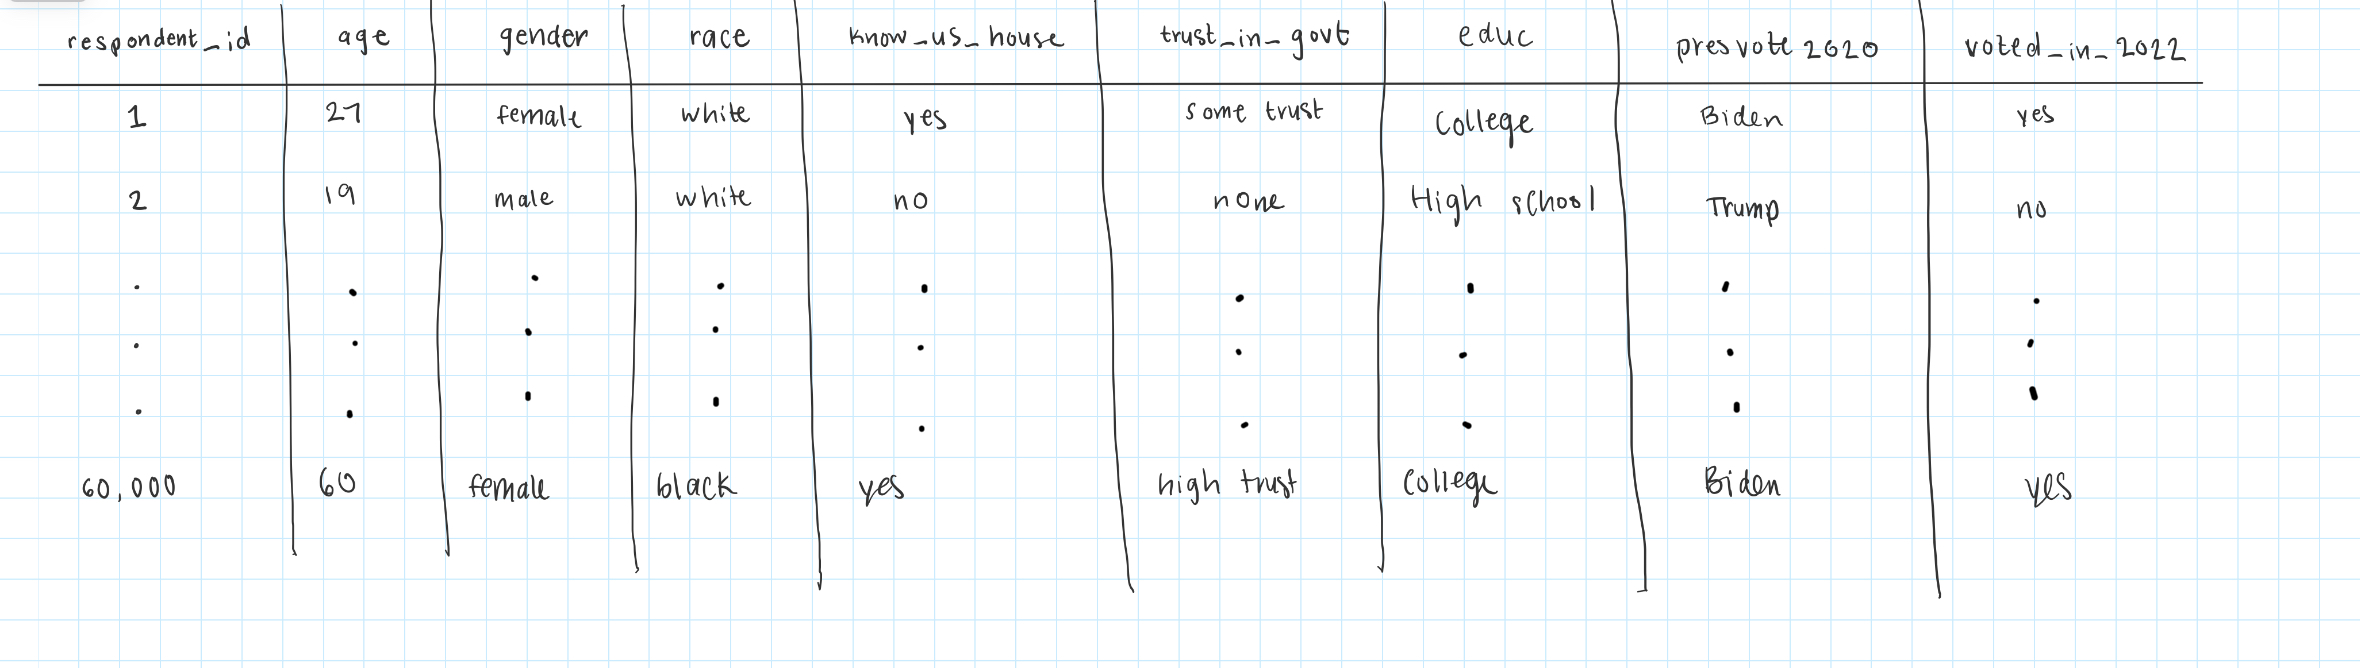 respondent_id age gender race know_us_house trust_in_govt educ presvote 2020 voted_in_2022
1 27 female white yes some trust College Biden yes
2 19 male white no none High school Trump no
60,000 60 female black yes high trust College Biden yes